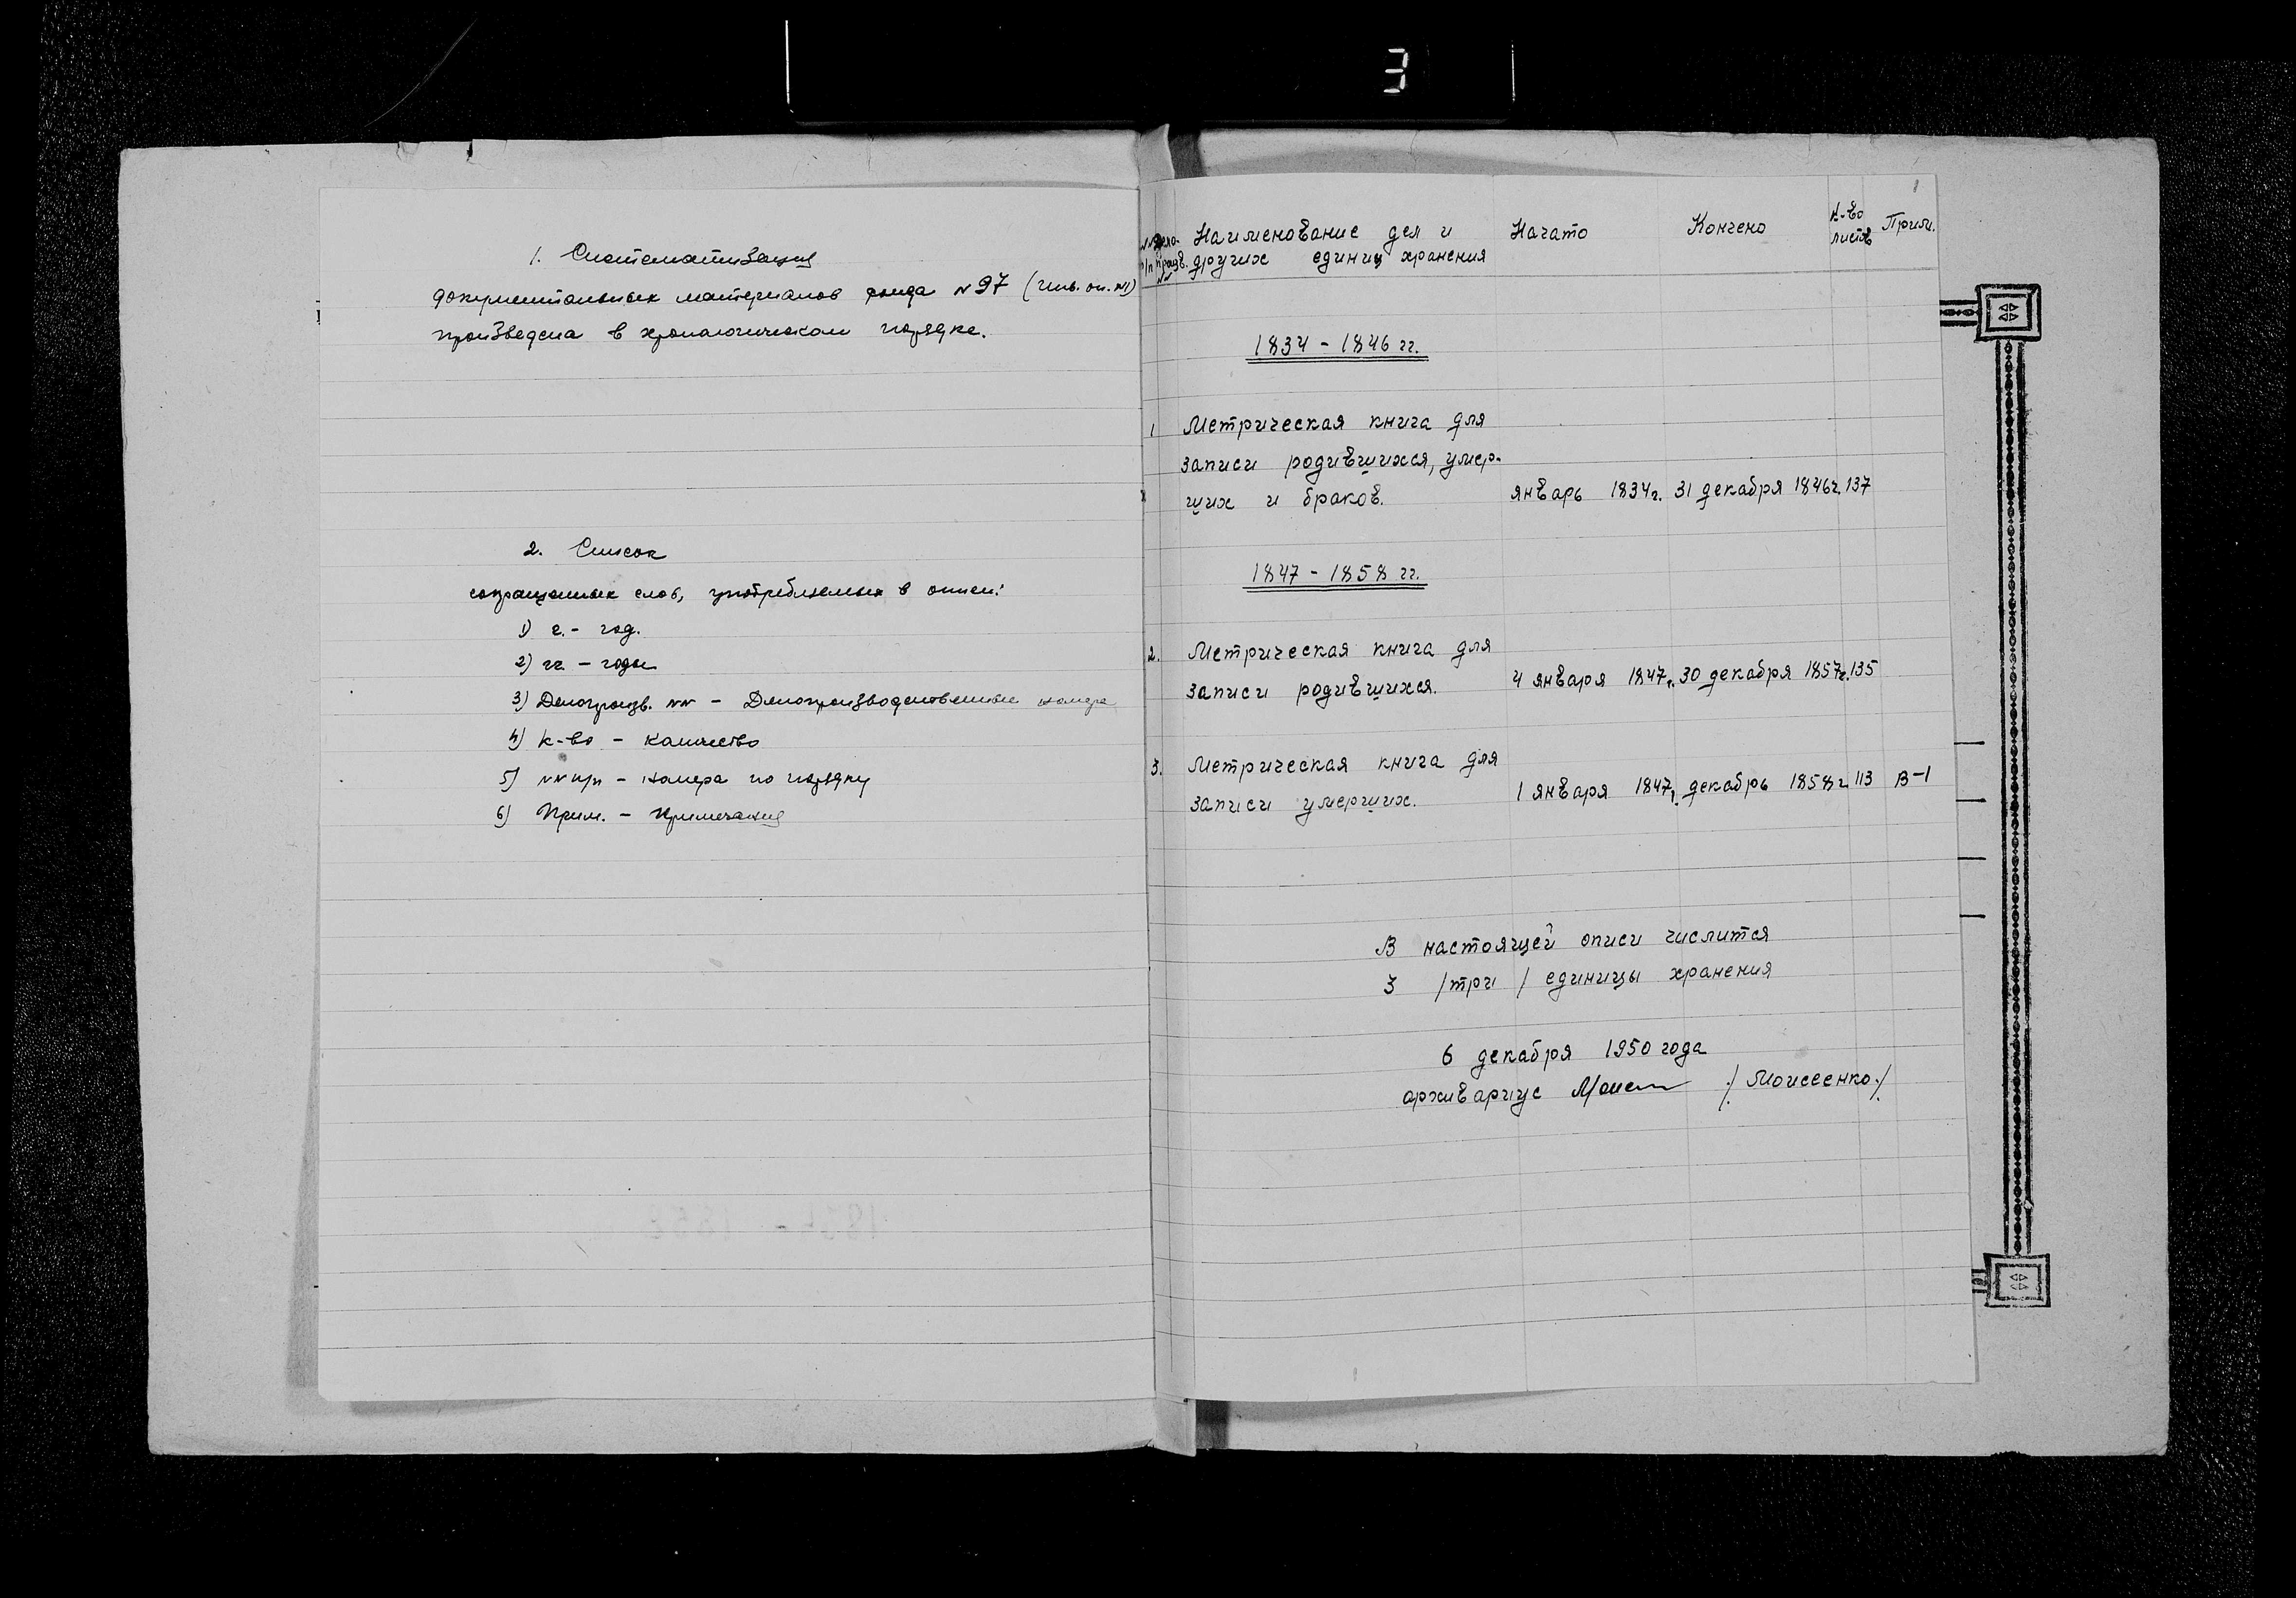 3
1. Систематизация
документальных материалов фонда №97 (инв. оп. №1)
произведена в хронологическом порядке.
2. Список
сокращенных слов, употребляемых в описи:
1) г. - год.
2) гг. - годы
3) Делопроизв. №№ - Делопроизводственные номера
4) к-во - количество
5) №№ п/п - номера по порядку
6) Прим. - примечания
1
№№ п/п Дело-произв. №№ Наименование дел и других единиц хранения Начато Кончено К-во листов Прим.
1834 - 1846 гг.
1 Метрическая книга для
записи родившихся, умер-
ших и браков. январь 1834г. 31 декабря 1846г. 137
1847 - 1858 гг.
2. Метрическая книга для
записи родившихся. 4 января 1847г. 30 декабря 1857г. 135
3. Метрическая книга для
записи умерших. 1 января 1847г. декабрь 1858г. 113 В-1
В настоящей описи числится
3 /три/ единицы хранения
6 декабря 1950 года
архивариус /Моисеенко./